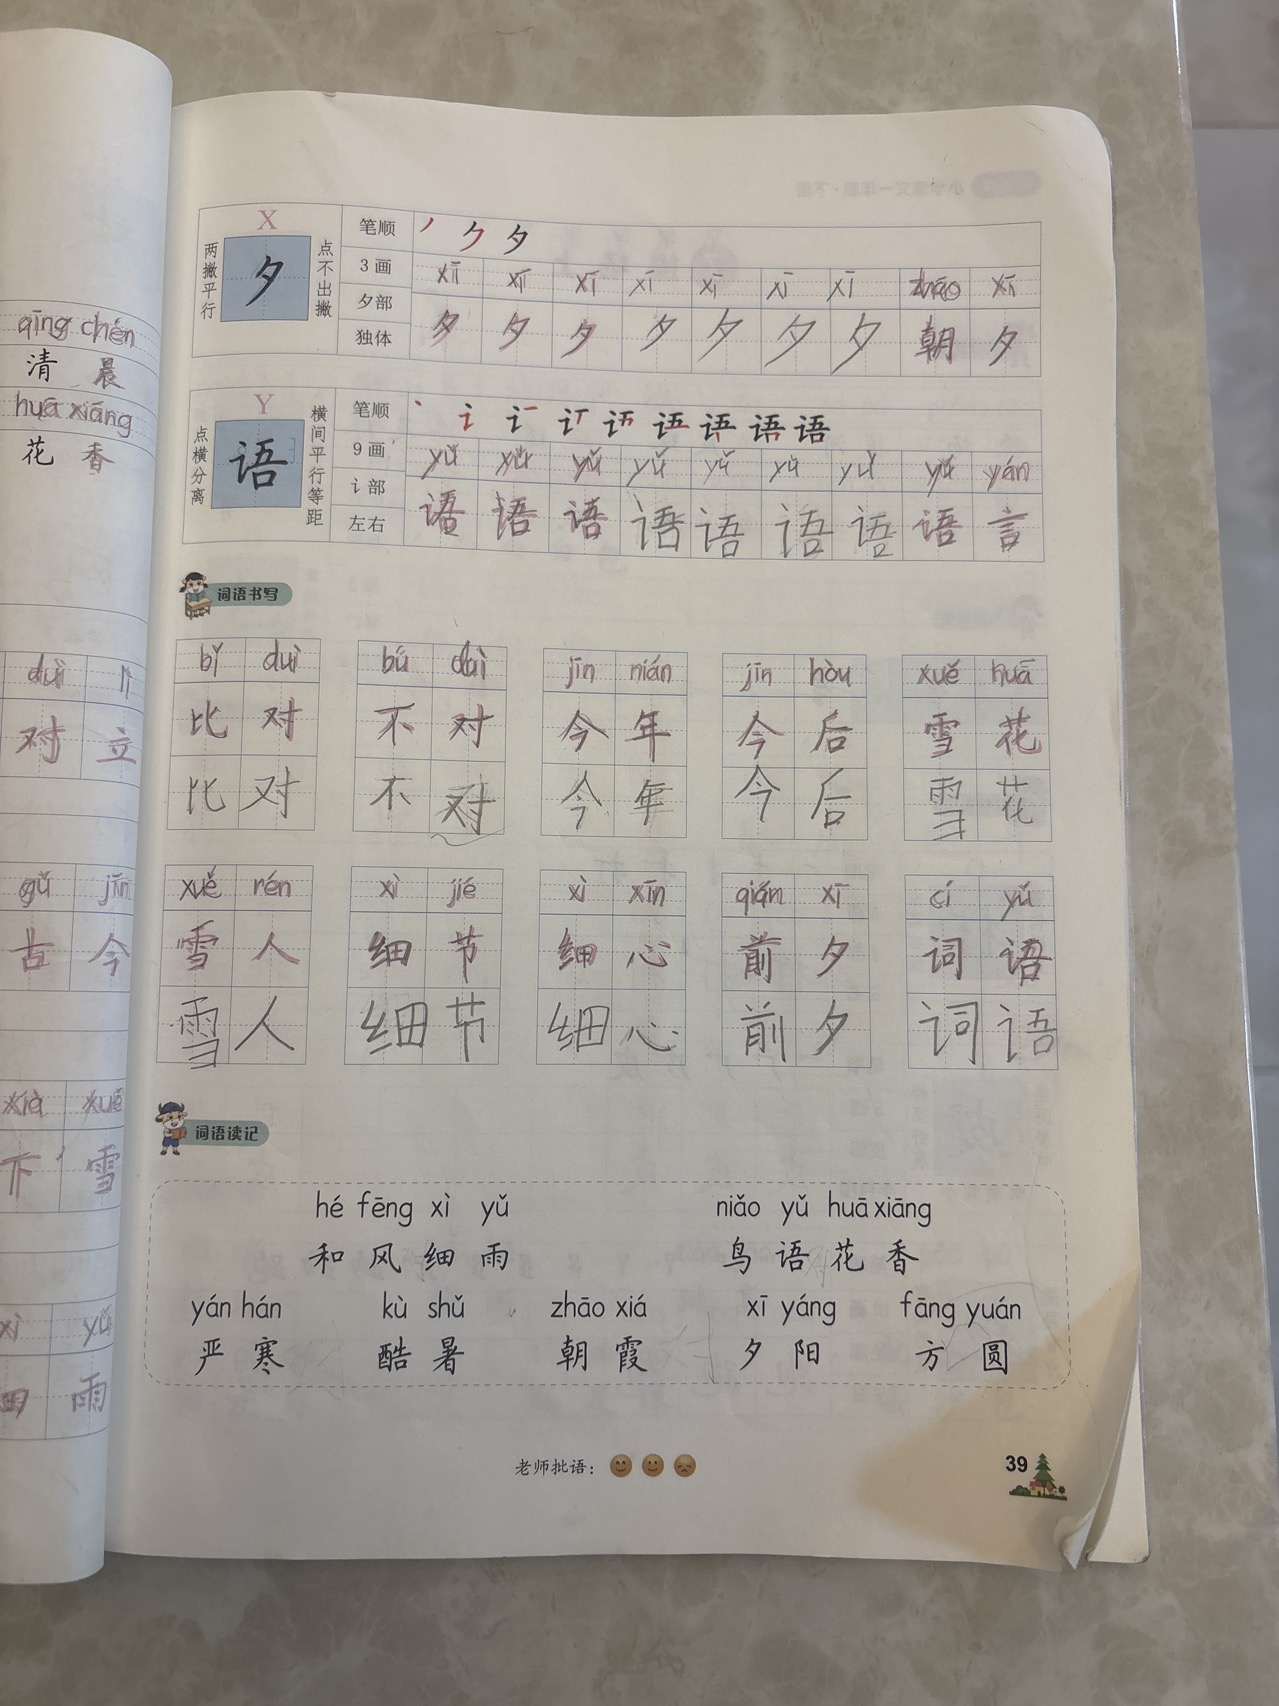 qīng chén
清 晨
huā xiāng
花 香
duì lì
对 立
gǔ jīn
古 今
xià xuě
下 雪
xì yǔ
细 雨
X
两撇平行
夕
点不出撇
笔顺
3画
xī xī xī xī xī xī xī zhāo xī
夕部
独体
夕 夕 夕 夕 夕 夕 夕 朝 夕
Y
点横分离
语
横间平行等距
笔顺
9画
yǔ yǔ yǔ yǔ yǔ yǔ yǔ yǔ yán
讠部
左右
语 语 语 语 语 语 语 语 言
词语书写
bǐ duì bú duì jīn nián jīn hòu xuě huā
比 对 不 对 今 年 今 后 雪 花
比 对 不 对 今 年 今 后 雪 花
xuě rén xì jié xì xīn qián xī cí yǔ
雪 人 细 节 细 心 前 夕 词 语
雪 人 细 节 细 心 前 夕 词 语
词语读记
hé fēng xì yǔ niǎo yǔ huā xiāng
和 风 细 雨 鸟 语 花 香
yán hán kù shǔ zhāo xiá xī yáng fāng yuán
严 寒 酷 暑 朝 霞 夕 阳 方 圆
老师批语：
39